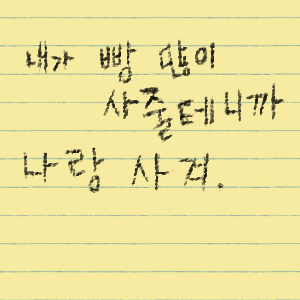 내가 빵 많이
사줄테니까
나랑 사겨.